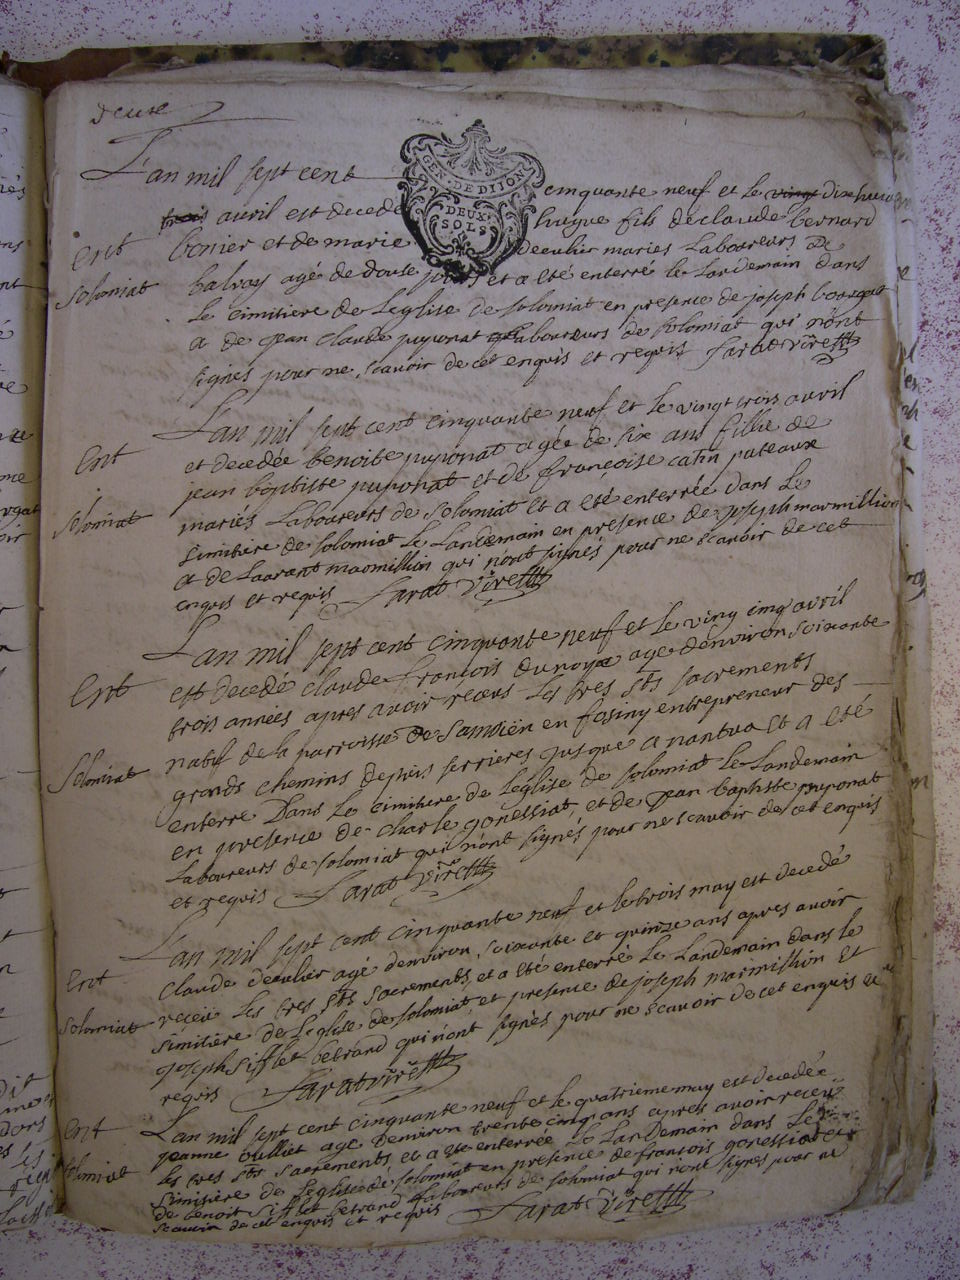 L'an mil sept cent
GEN. DE DIJON
DEUX
SOLS
cinquante neuf et le vingt dixhuit
trois avril est decedé hugue fils declaude bernard
Ent
bonier et de marie decultis maries Laboureurs De
Solomiat
balvay agé de douse jours et a eté enterré le Landemain dans
Le cimitiere de Leglise de Solomiat en presence de joseph
et de jean claude puponat Laboureurs de Solomiat qui n'ont
signés pour ne scavoir de cet enquis et requis Sarat vire
L'an mil sept cent cinquante neuf et le vingt trois avril
Ent
et decedée benoite puponat agée de six ans fillie de
jean baptiste puponat et de françoise catin pateaux
Solomiat
mariés Laboureurs de Solomiat et a eté enterrée dans Le
simitiere de Solomiat Le Landemain en presence de joseph marmillion
et de Laurant marmillion qui n'ont signés pour ne scavoir de cet
enquis et requis Sarat vire
L'an mil sept cent cinquante neuf et le ving cinq avril
Ent
est decedé claude françois age d'environ soixante
trois années apres avoir receus Les tres sts sacrements
natif de la parroisse de en fosiny entrepreneur des
Solomiat
grands chemins depuis serrieres jusque a nantua et a eté
enterre Dans Le cimitiere de Leglise de Solomiat Le Landemain
en presence de charle gonessiat, et de jean baptiste puponat
Laboureurs de Solomiat qui n'ont signés pour ne scavoir de cet enquis
et requis Sarat vire
L'an mil sept cent cinquante neuf et le trois may est decedé
Ent
claude agé d'environ soixante et quinze ans apres avoir
receu Les tres sts sacrements, et a eté enterré Le Landemain dans le
Solomiat
simitiere de Leglise de Solomiat, et presence de joseph marmillion et
joseph Sifflet betrand qui n'ont signés pour ne scavoir de cet enquis et
requis Sarat vire
L'an mil sept cent cinquante neuf et le quatrieme may est decedée
Ent
jeanne vulliet age D'environ trente cinq ans apres avoir receu
les tres sts sacrements, et a eté enterrée Le Landemain dans Le
Solomiat
simitiere de Leglise de Solomiat en presence de françois gonessiat et
de benoit Sifflet betrand Laboureurs de Solomiat qui n'ont signes pour ne
scavoir de cet enquis et requis Sarat vire